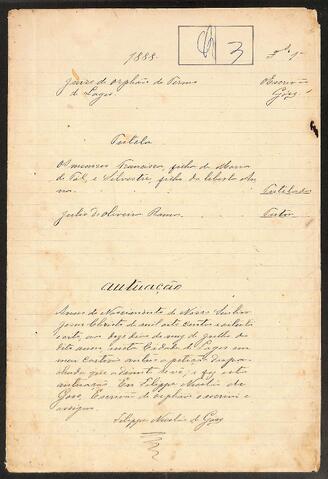 1888.
3
Fl. 1
Juizo de Orphãos do Termo
de Lages.
O Escrivão
Góss
Tutela
Os menores Francisca, filha de Maria
de Tal, e Silvestre, filho da liberta An-
na.
Tutelados
Julio de Oliveira Ramos.
Tutor
Autuação
Anno do Nascimento de Nosso Senhor
Jesus Christo de mil oito centos e oitenta
e oito, aos doze dias do mez de Julho do
dito anno nesta Cidade de Lages em
meu Cartorio autuo a petição despa-
chada que adiante se vê, e fiz esta
autuação. Eu Filippe Nicoláo de
Góss, Escrivão de orphãos o escrevi e
assigno.
Filippe Nicoláo de Góss